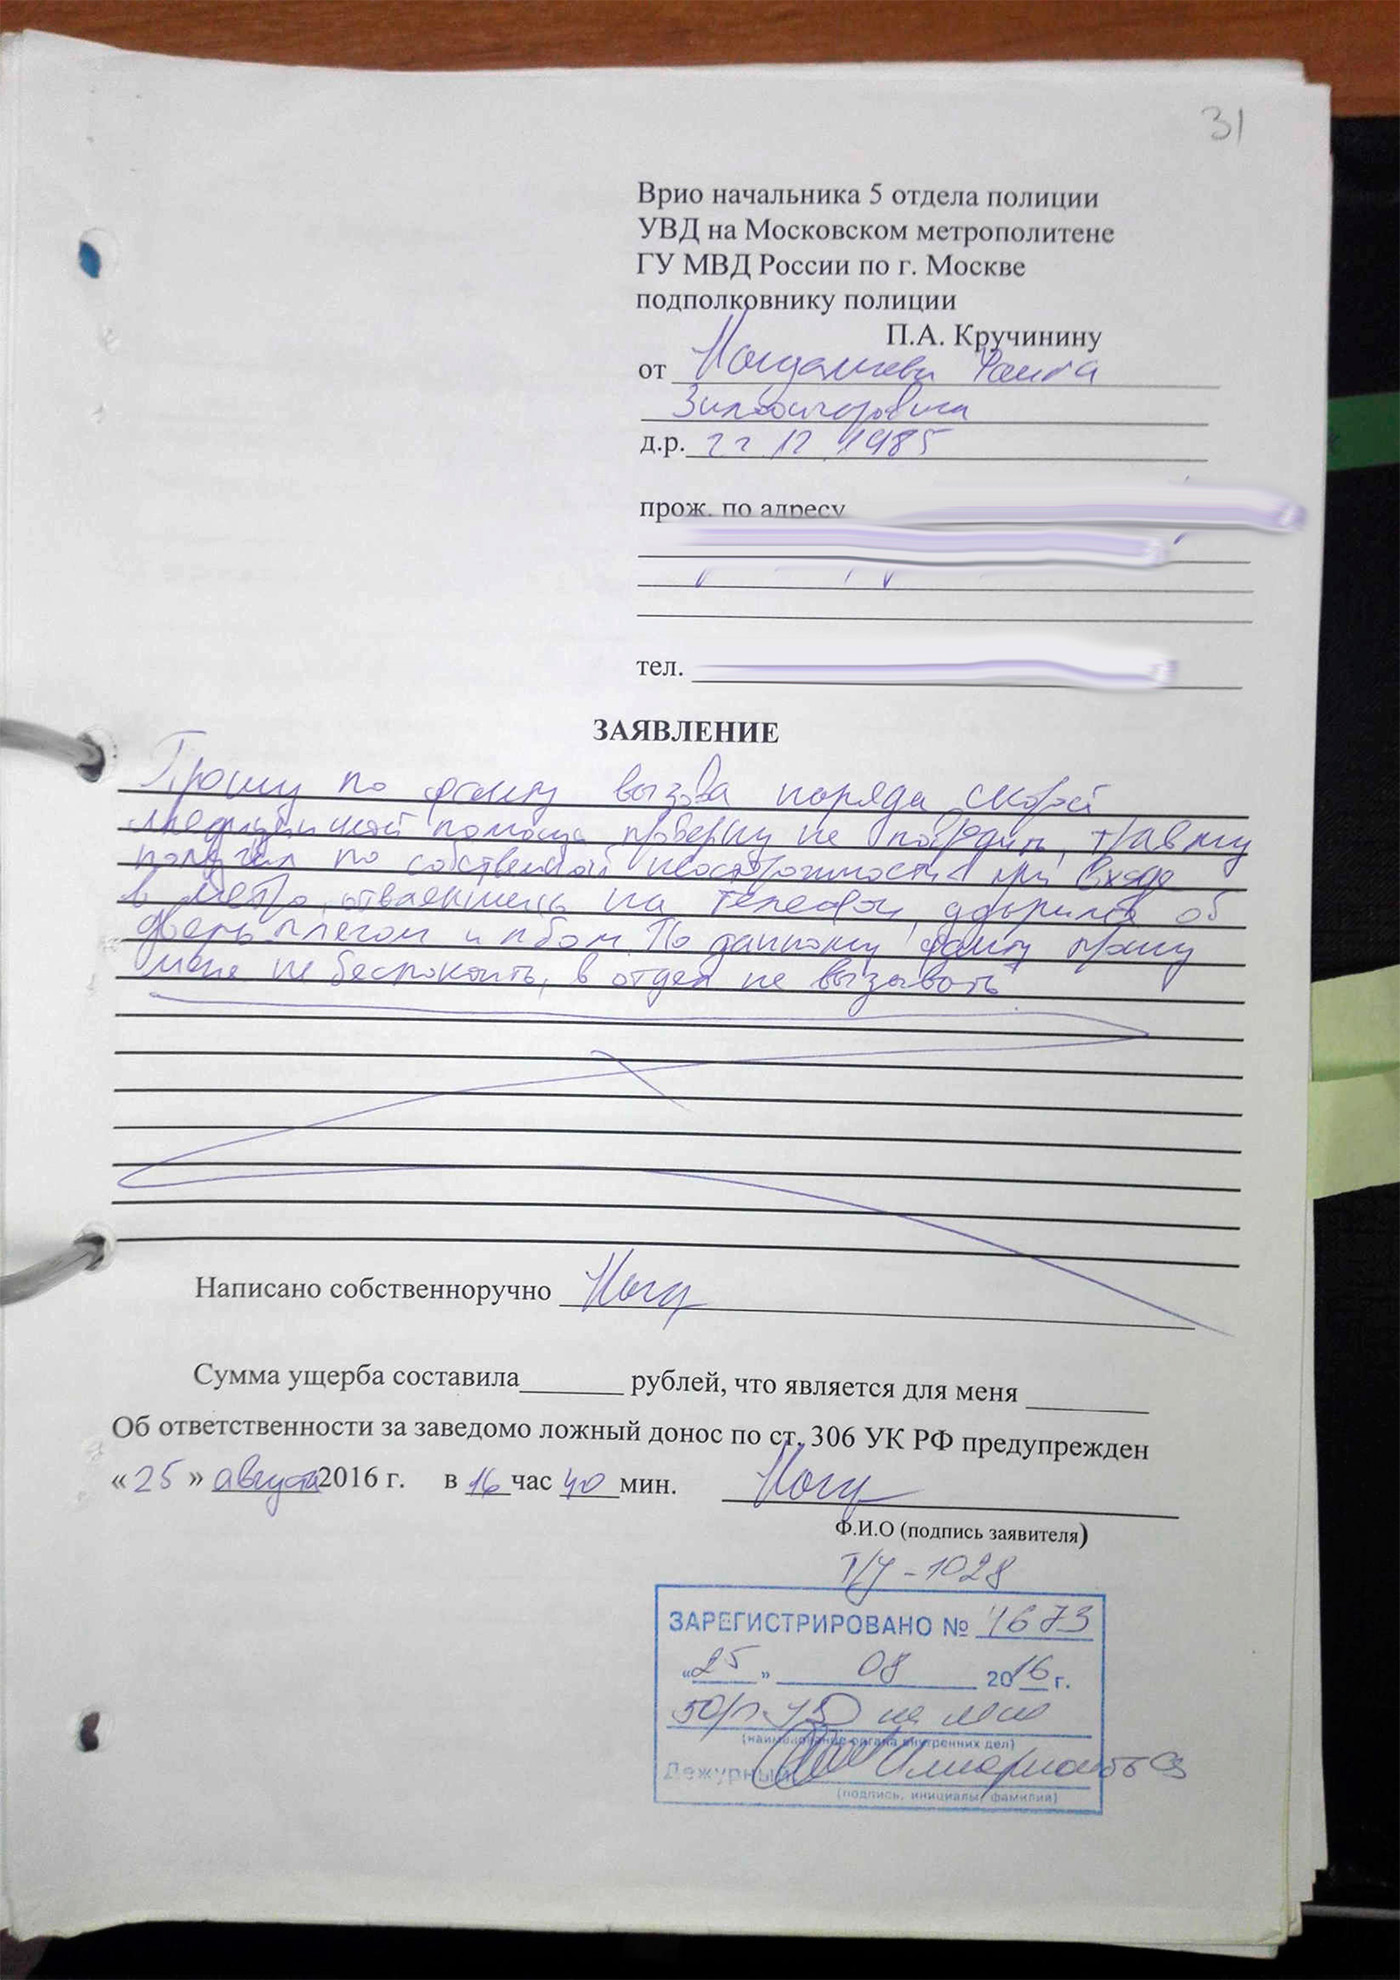 31
Врио начальника 5 отдела полиции
УВД на Московском метрополитене
ГУ МВД России по г. Москве
подполковнику полиции
П.А. Кручинину
от
д.р. 22 12 1985
прож. по адресу
тел.
ЗАЯВЛЕНИЕ
Прошу по факту вызова наряда скорой
медицинской помощи проверку не проводить, травму
получил по собственной неосторожности при входе
в метро, отвлекшись на телефон, ударился об
дверь плечом и лбом. По данному факту прошу
меня не беспокоить, в отдел не вызывать
Написано собственноручно
Сумма ущерба составила______ рублей, что является для меня ______
Об ответственности за заведомо ложный донос по ст. 306 УК РФ предупрежден
« 25 » августа 2016 г. в 16 час 40 мин.
Ф.И.О (подпись заявителя)
Т/У-1028
ЗАРЕГИСТРИРОВАНО № 1673
«25» 08 2016 г.
(наименование органа внутренних дел)
Дежурный
(подпись, инициалы, фамилия)